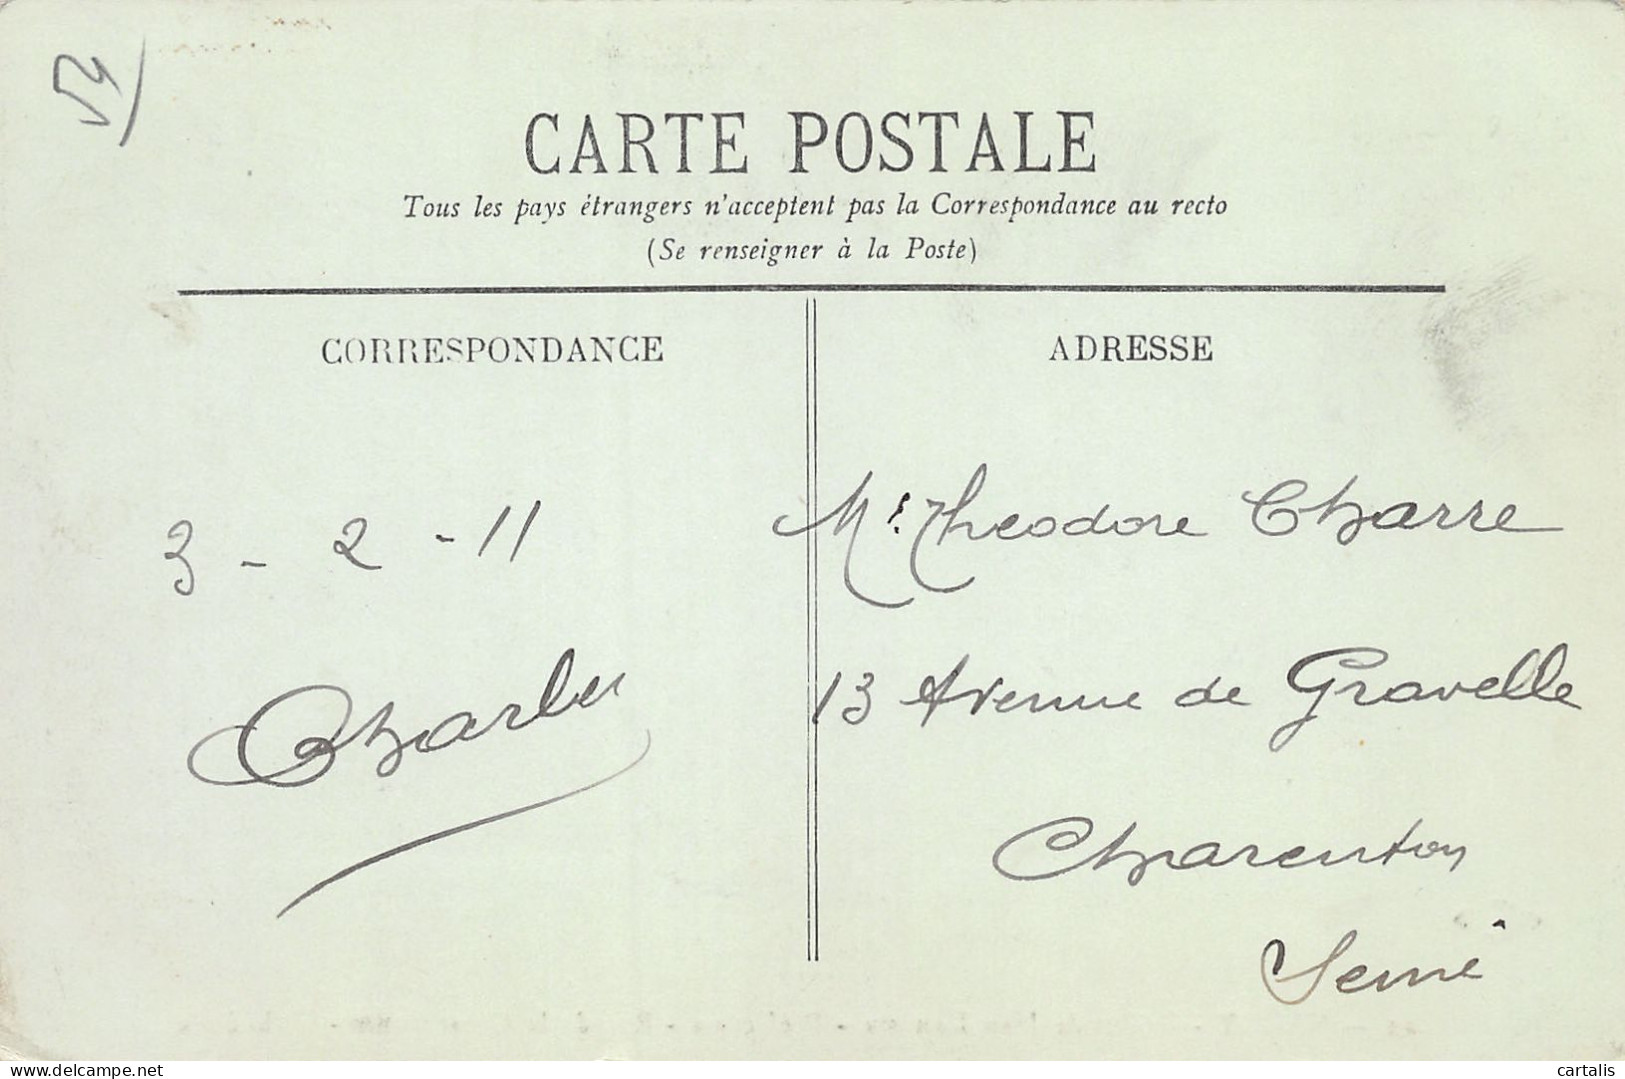 CARTE POSTALE
Tous les pays étrangers n'acceptent pas la Correspondance au recto
(Se renseigner à la Poste)
CORRESPONDANCE
3 - 2 - 11
Charles
ADRESSE
Mr. Theodore Charre
13 Avenue de Gravelle
Charenton
Seine
www.delcampe.net
cartalis